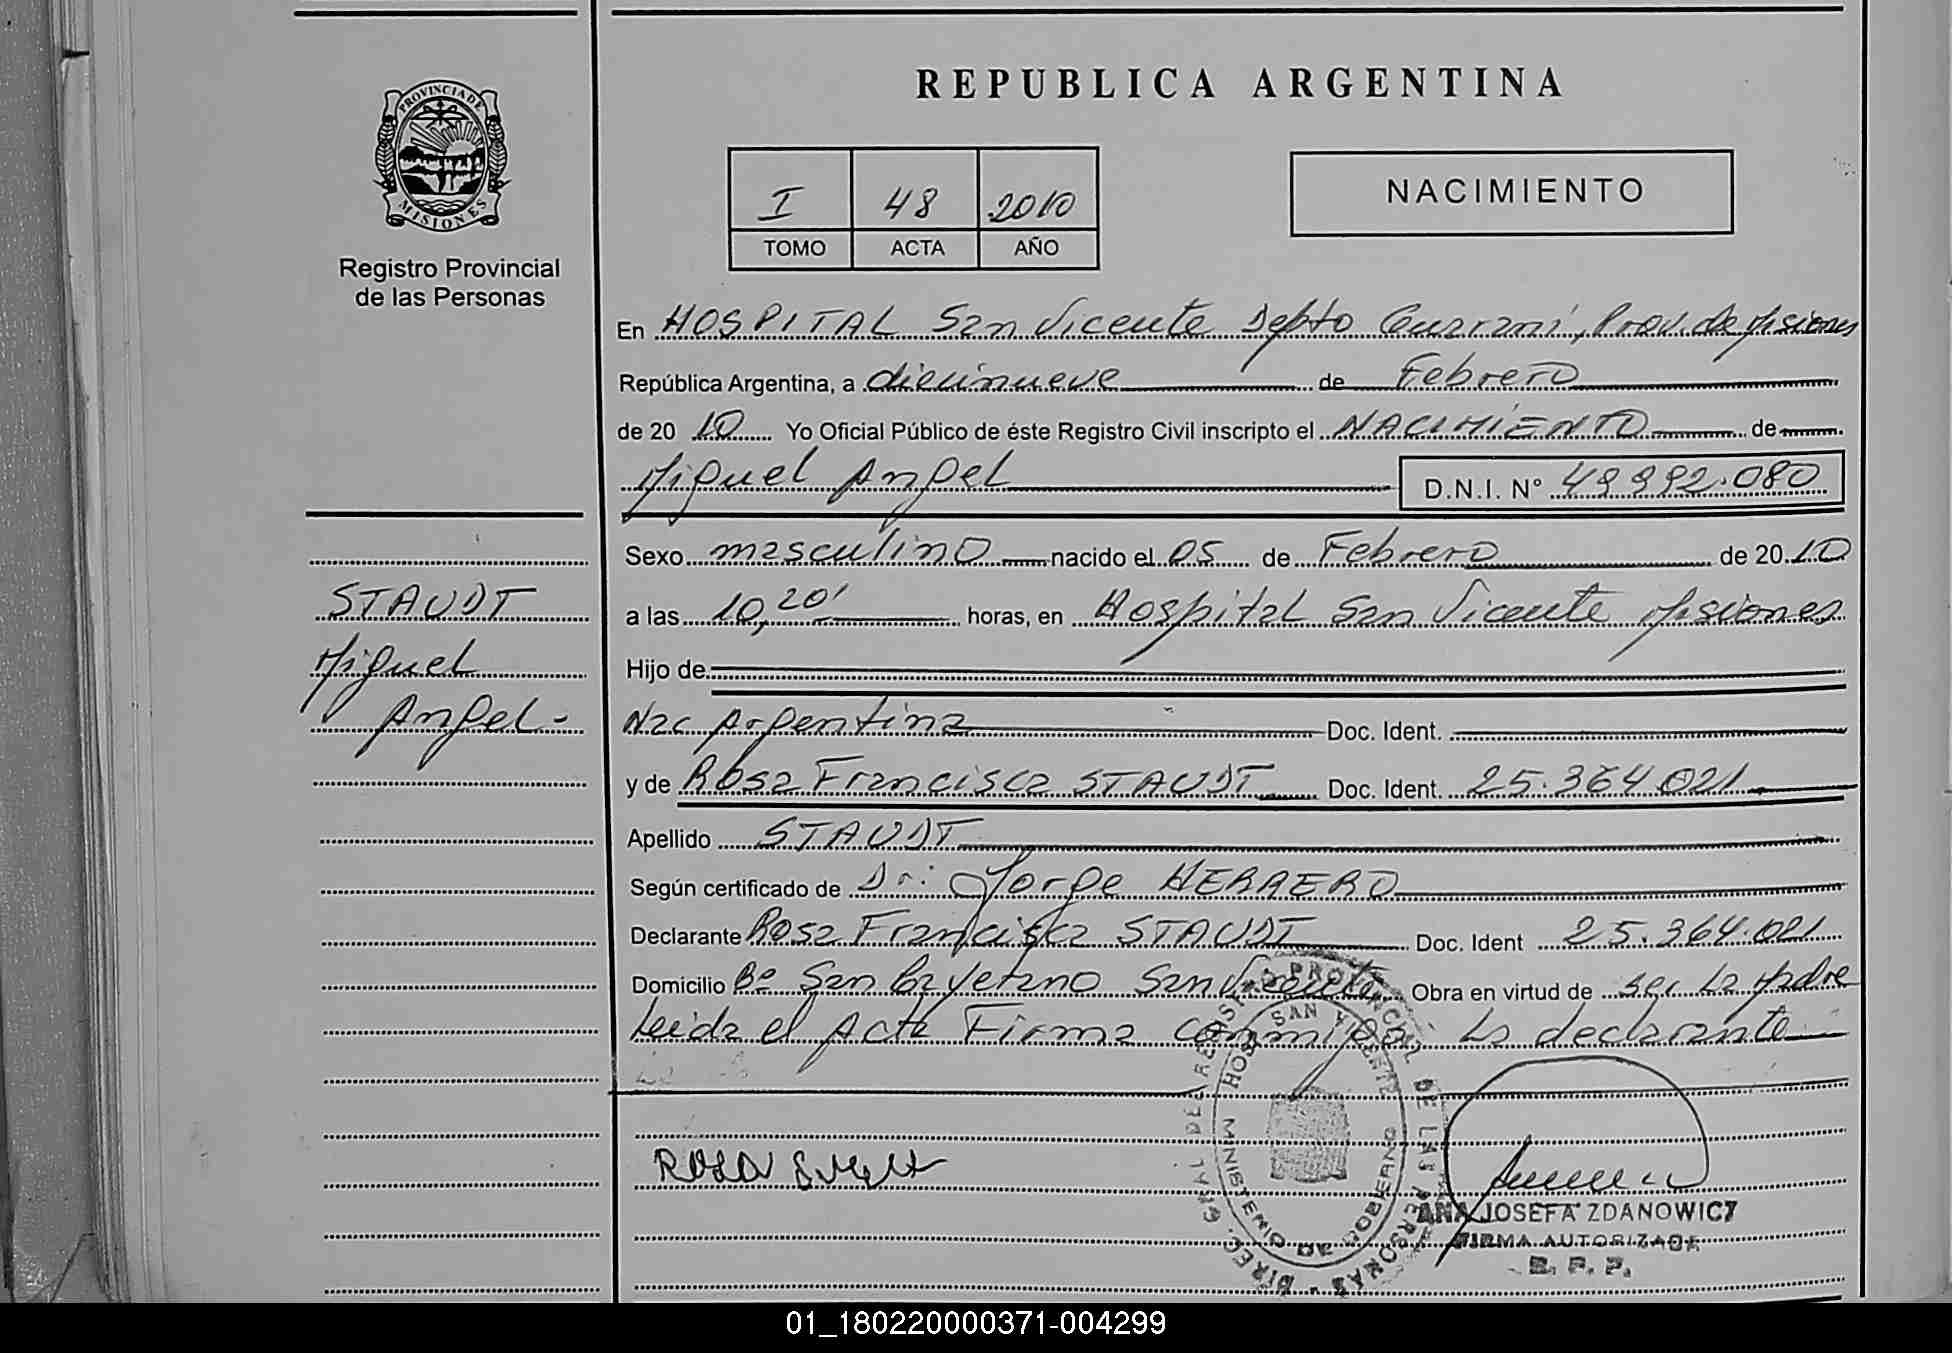 PROVINCIA DE
MISIONES
Registro Provincial
de las Personas
REPUBLICA ARGENTINA
I 48 2010
TOMO ACTA AÑO
NACIMIENTO
En HOSPITAL San Vicente Depto Guarani, Prov. de Misiones
República Argentina, a diecinueve de Febrero
de 20 10 Yo Oficial Público de éste Registro Civil inscripto el NACIMIENTO de
Miguel Angel D.N.I. N° 49992.080
Sexo masculino nacido el 05 de Febrero de 20 10
a las 10,20' horas, en Hospital San Vicente Misiones
Hijo de
Nac Argentina Doc. Ident.
y de Rosa Francisca STAUDT Doc. Ident. 25.364.021
Apellido STAUDT
Según certificado de Dr. Jorge HERRERO
Declarante Rosa Francisca STAUDT Doc. Ident 25.364.021
Domicilio B° San Cayetano San Vicente Obra en virtud de ser la Madre
Leida el Acta Firma conmigo la declarante
STAUDT
Miguel
Angel-
DIREC. GRAL DE REGISTRO PROVINCIAL DE LAS PERSONAS
HOSP. SAN VICENTE
MINISTERIO DE GOBIERNO
ROSA
ANA JOSEFA ZDANOWICZ
FIRMA AUTORIZADA
R. P. P.
01_180220000371-004299